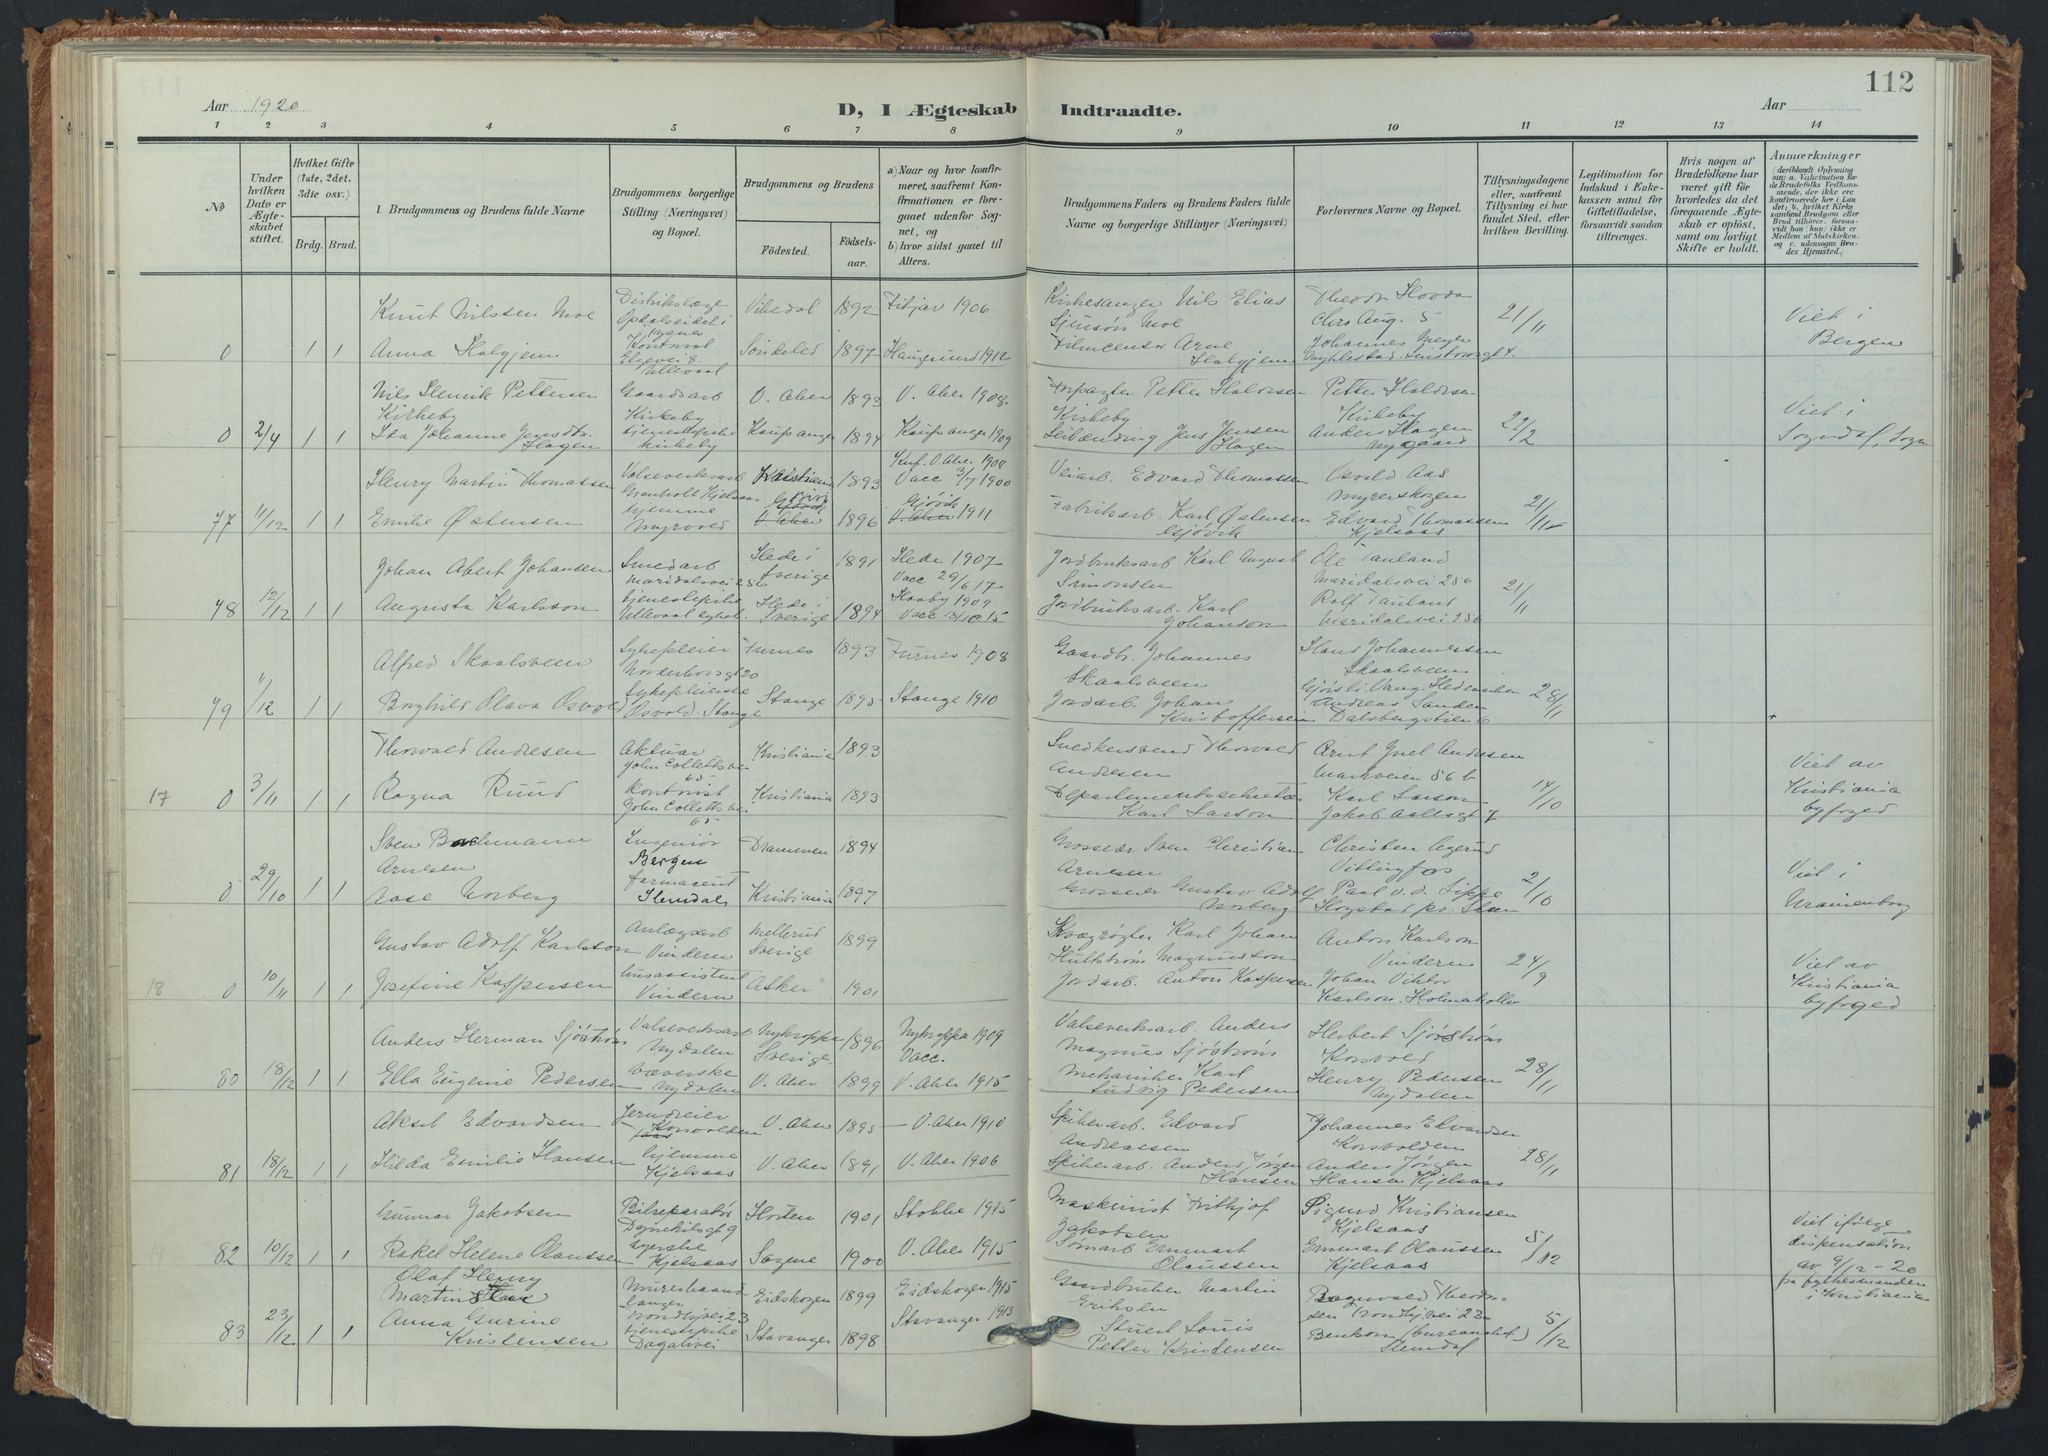 112
Aar 1920
D, I Ægteskab Indtraadte.
Aar
1 2 3 4 5 6 7 8 9 10 11 12 13 14
No
Under hvilken Dato er Ægteskabet stiftet.
Hvilket Gifte (1ste, 2det, 3die osv.)
Brdg. Brud.
1. Brudgommens og Brudens fulde Navne
Brudgommens borgerlige Stilling (Næringsvei) og Bopæl.
Brudgommens og Brudens
Fødested.
Fødselsaar.
a) Naar og hvor konfirmeret, saafremt Konfirmationen er foregaaet udenfor Sognet, og
b) hvor sidst gaaet til Alters.
Brudgommens Faders og Brudens Faders fulde Navne og borgerlige Stillinger (Næringsvei)
Forlovernes Navne og Bopæl.
Tillysningsdagene eller, saafremt Tillysning ei har fundet Sted, efter hvilken Bevilling.
Legitimation for Indskud i Enkekassen samt for Giftetilladelse, forsaavidt saadan tiltrænges.
Hvis nogen af Brudefolkene har været gift før hvorledes da det foregaaende Ægteskab er opløst, samt om lovligt Skifte er holdt.
Anmærkninger
(deriblandt Oplysning om: a. Vakcination for de Brudefolks Vedkommende, der ikke ere konfirmerede her i Landet; b. hvilket Kirkesamfund Brudgom eller Brud tilhører, forsaavidt han (hun) ikke er Medlem af Statskirken og c. udensogns Brudes Hjemsted.)
Knut Nilssen Moe Distriktslæge 1892 Fitjar 1906 Kirkesanger Nils Elias Theodor Hovda 21/11 Viet i
0 1 1 Anna Helgjem Kontorist Søndeled 1897 Haugesund 1912 Arne Helgjem Johannes Meyer Bergen
Ullevaal
Nils Henrik Pettersen Gaardsarb V. Aker 1893 V. Aker 1908. Forpagter Petter Halvorsen Petter Halvorsen
Kirkeby Kirkeby Kirkeby Kirkeby Viet i
0 2/4 1 1 Ida Johanne Jensdtr. tjenestepike Kaupanger 1894 Kaupanger 1909 Jens Jensen Anders Hagen 22/2 Sogndal, Sogn
Hagen Kirkeby Hagen Nygaard
Konf. V. Aker 1908
Henry Martin Thomassen Valseverksarb Kristiania 1893 Vacc 3/7 1900 Veiarb. Edvard Thomassen Osvald Aas
Kjelsaas Gjøvik Gjøvik Myrerskogen
77 11/12 1 1 Emilie Østensen hjemme V. Aker 1896 V. Aker 1911 Fabrikarb. Karl Østensen Edvard Thomassen 21/11
Myrvold Gjøvik Kjelsaas
Johan Albert Johansen Smedarb Hede i Sverige 1891 Hede 1907 Jordbruksarb Karl August Ole Tanland
Maridalsvei 256 Vacc 29/6 17 Simonsen Maridalsvei 256
78 12/12 1 1 Augusta Karlsson tjenestepike Hede i Sverige 1894 1909 Jordbruksarb. Karl Rolf Tanland 21/11
Ullevaal sykeh. Vacc 13/10 15 Johanson Maridalsvei 256
Alfred Skaalsveen Sykepleier Furnes 1893 Furnes 1908 Gaardb. Johannes Hans Johannessen
Skaalsveen Skaalsveen
79 11/12 1 1 Borghild Olava Osvold Sykepleierske Stange 1895 Stange 1910 Jordarb. Johan Andreas Sanden 28/11
Osvold. Stange Kristoffersen Dalsbergstien 6
Thorvald Andresen Aktuar Kristiania 1893 Snedkersvend Thorvald Arnt Juel Andresen Viet av
John Collettsvei 65 Andresen Markveien 56 b Kristiania
17 0 3/11 1 1 Ragna Ruud Kontorist Kristiania 1893 Departementssekretær Karl Larson 14/10 byfoged
John Collettsvei 65 Karl Larson Jakob Aallsgt 7
Sven Bachmann Ingeniør Drammen 1894 Grosserer Sven Christian Christen Agerud Viet i
Arnesen Bergen Arnesen Vittingfos Uranienborg
0 29/10 1 1 Aase Norberg farmaceut Kristiania 1897 Grosserer Gustav Adolf Paal v. d. Lippe 2/10
Slemdal Norberg
Gustav Adolf Karlston Anlægsarb Mellerud 1899 Karl Johan Anton Karlson
Vinderen Sverige Hultstrøm Magnusson Vinderen Viet av
18 0 10/11 1 1 Josefine Kaspersen husassistent Asker 1901 Jordarb. Anton Kaspersen Johan Viktor 24/9 Kristiania
Vinderen Karlson. Holmenkollen byfoged
Anders Herman Sjøstrøm Valseverksarb Nykroppa 1896 Nykroppa 1909 Valseverksarb. Anders Herbert Sjøstrøm
Nydalen Sverige Vacc. Magnus Sjøstrøm Korsvold
80 18/12 1 1 Ella Eugenie Pedersen væverske V. Aker 1899 V. Aker 1915 Mekaniker Karl Henry Pedersen 28/11
Nydalen Ludvig Pedersen Nydalen
Aksel Edvardsen Jerndreier V. Aker 1895 V. Aker 1910 Spikerarb. Edvard Johannes Edvardsen
Korsvolden Andreassen Korsvolden
81 18/12 1 1 Hilda Emilie Hansen hjemme V. Aker 1891 V. Aker 1906 Spikerarb. Anders Jørgen Anders Jørgen 28/11
Kjelsaas Hansen Hansen Kjelsaas
Gunnar Jakobsen Bilreparatør Horten 1901 1915 Maskinist Fritjof Sigurd Kristiansen Viet ifølge
Jakobsen Kjelsaas dispensation
82 10/12 1 1 Rakel Helene Olaussen Syerske Sagene 1900 V. Aker 1915 Emmart Emmart Olaussen 5/12 av 9/12 - 20
Kjelsaas Olaussen Kjelsaas fra fylkesmanden
Olaf Henry i Kristiania
Martin Eidskogen 1899 Eidskogen 1915 Gaardbruker Martin
23/12 Eriksen
83 1 1 Anna Gurine tjenestepike Stavanger 1898 Stavanger 1913 Stuert Louis 5/12
Kristensen Dagalivei Petter Kristensen Slemdal